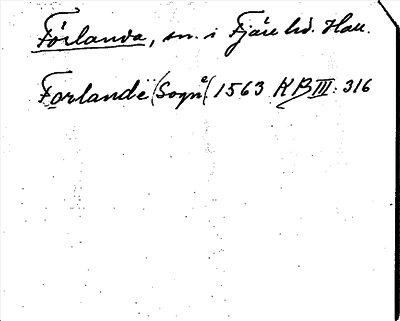 Förlanda, sn. i Fjäre hd. Hall.
Forlande (Sogne) 1563 KB III: 316